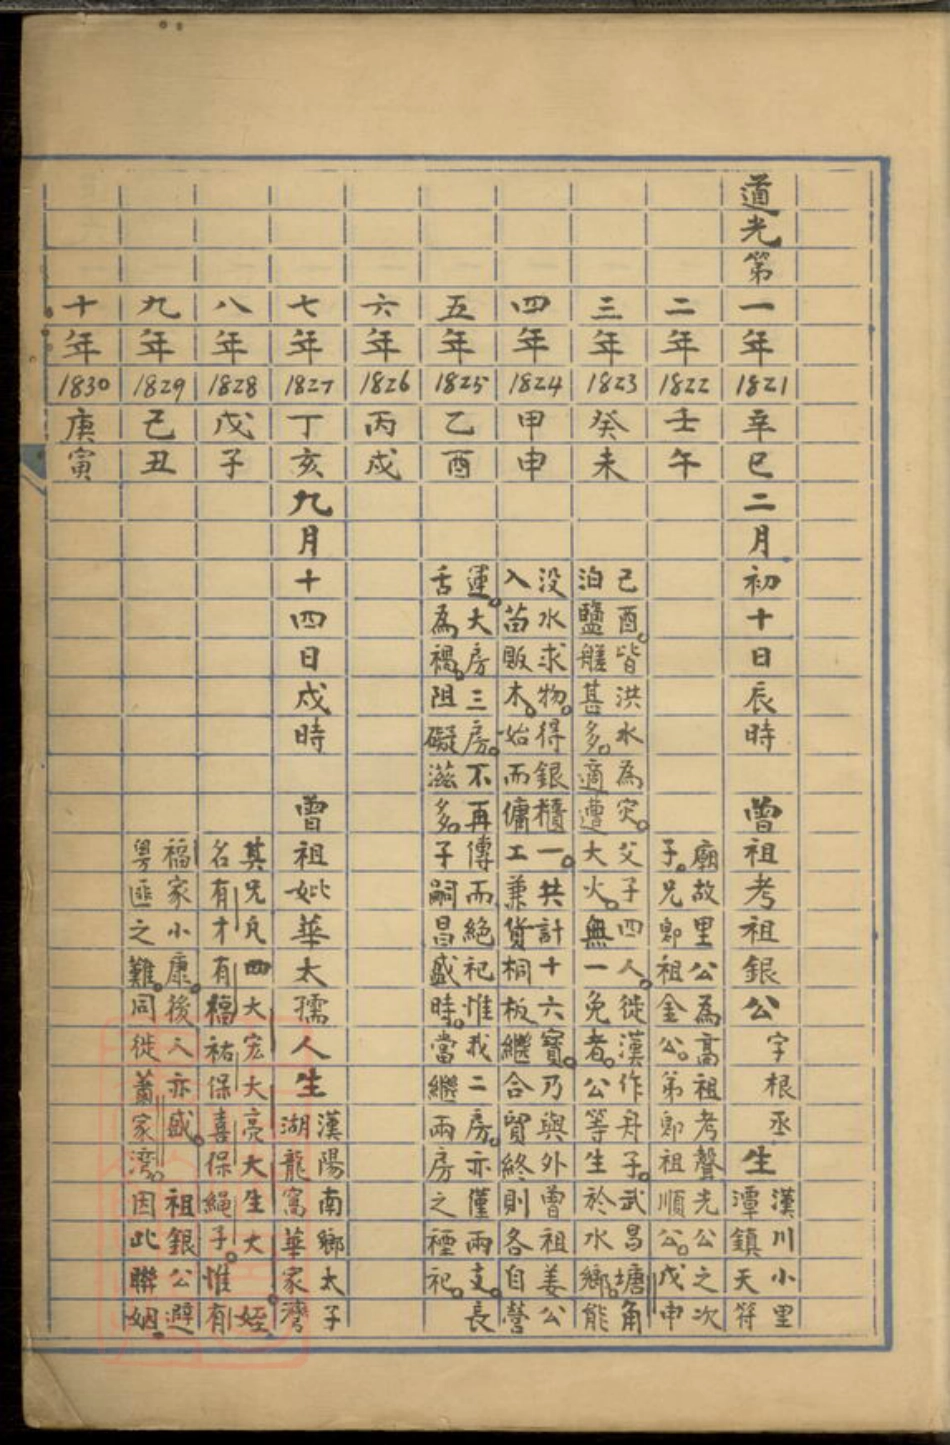 道光第一年1821辛巳二月初十日辰時　曾祖考祖銀公字根丞生漢川小里
潭鎮天符
二年1822壬午廟故里公為高祖考聲光公之次
子。兄即祖金公。弟即祖順公。戊申
三年1823癸未己酉。皆洪水為灾。父子四人。徙漢作舟子。武昌塘角
泊鹽艘甚多。適遭大火。無一免者。公等生於水鄉。能
四年1824甲申沒水求物。得銀櫃一。共計十六寶。乃與外曾祖姜公
入苗販木。始而傭工兼貨桐板繼合貿終則各自營
五年1825乙酉運。大房三房。不再傳而絕祀惟我二房。亦僅兩支。長
舌為禍。阻礙滋多。子嗣昌盛時。當繼兩房之禋祀。
六年1826丙戌
七年1827丁亥九月十四日戌時　曾祖妣華太孺人生漢陽南鄉太子
湖龍窩華家灣
八年1828戊子其兄凡四大宏大亮大生大姪
名有才有福祐保喜保繩子。惟有
九年1829己丑福家小康。後人亦盛。祖銀公避
粵匪之難。同徙蕭家灣。因此聯姻。
十年1830庚寅